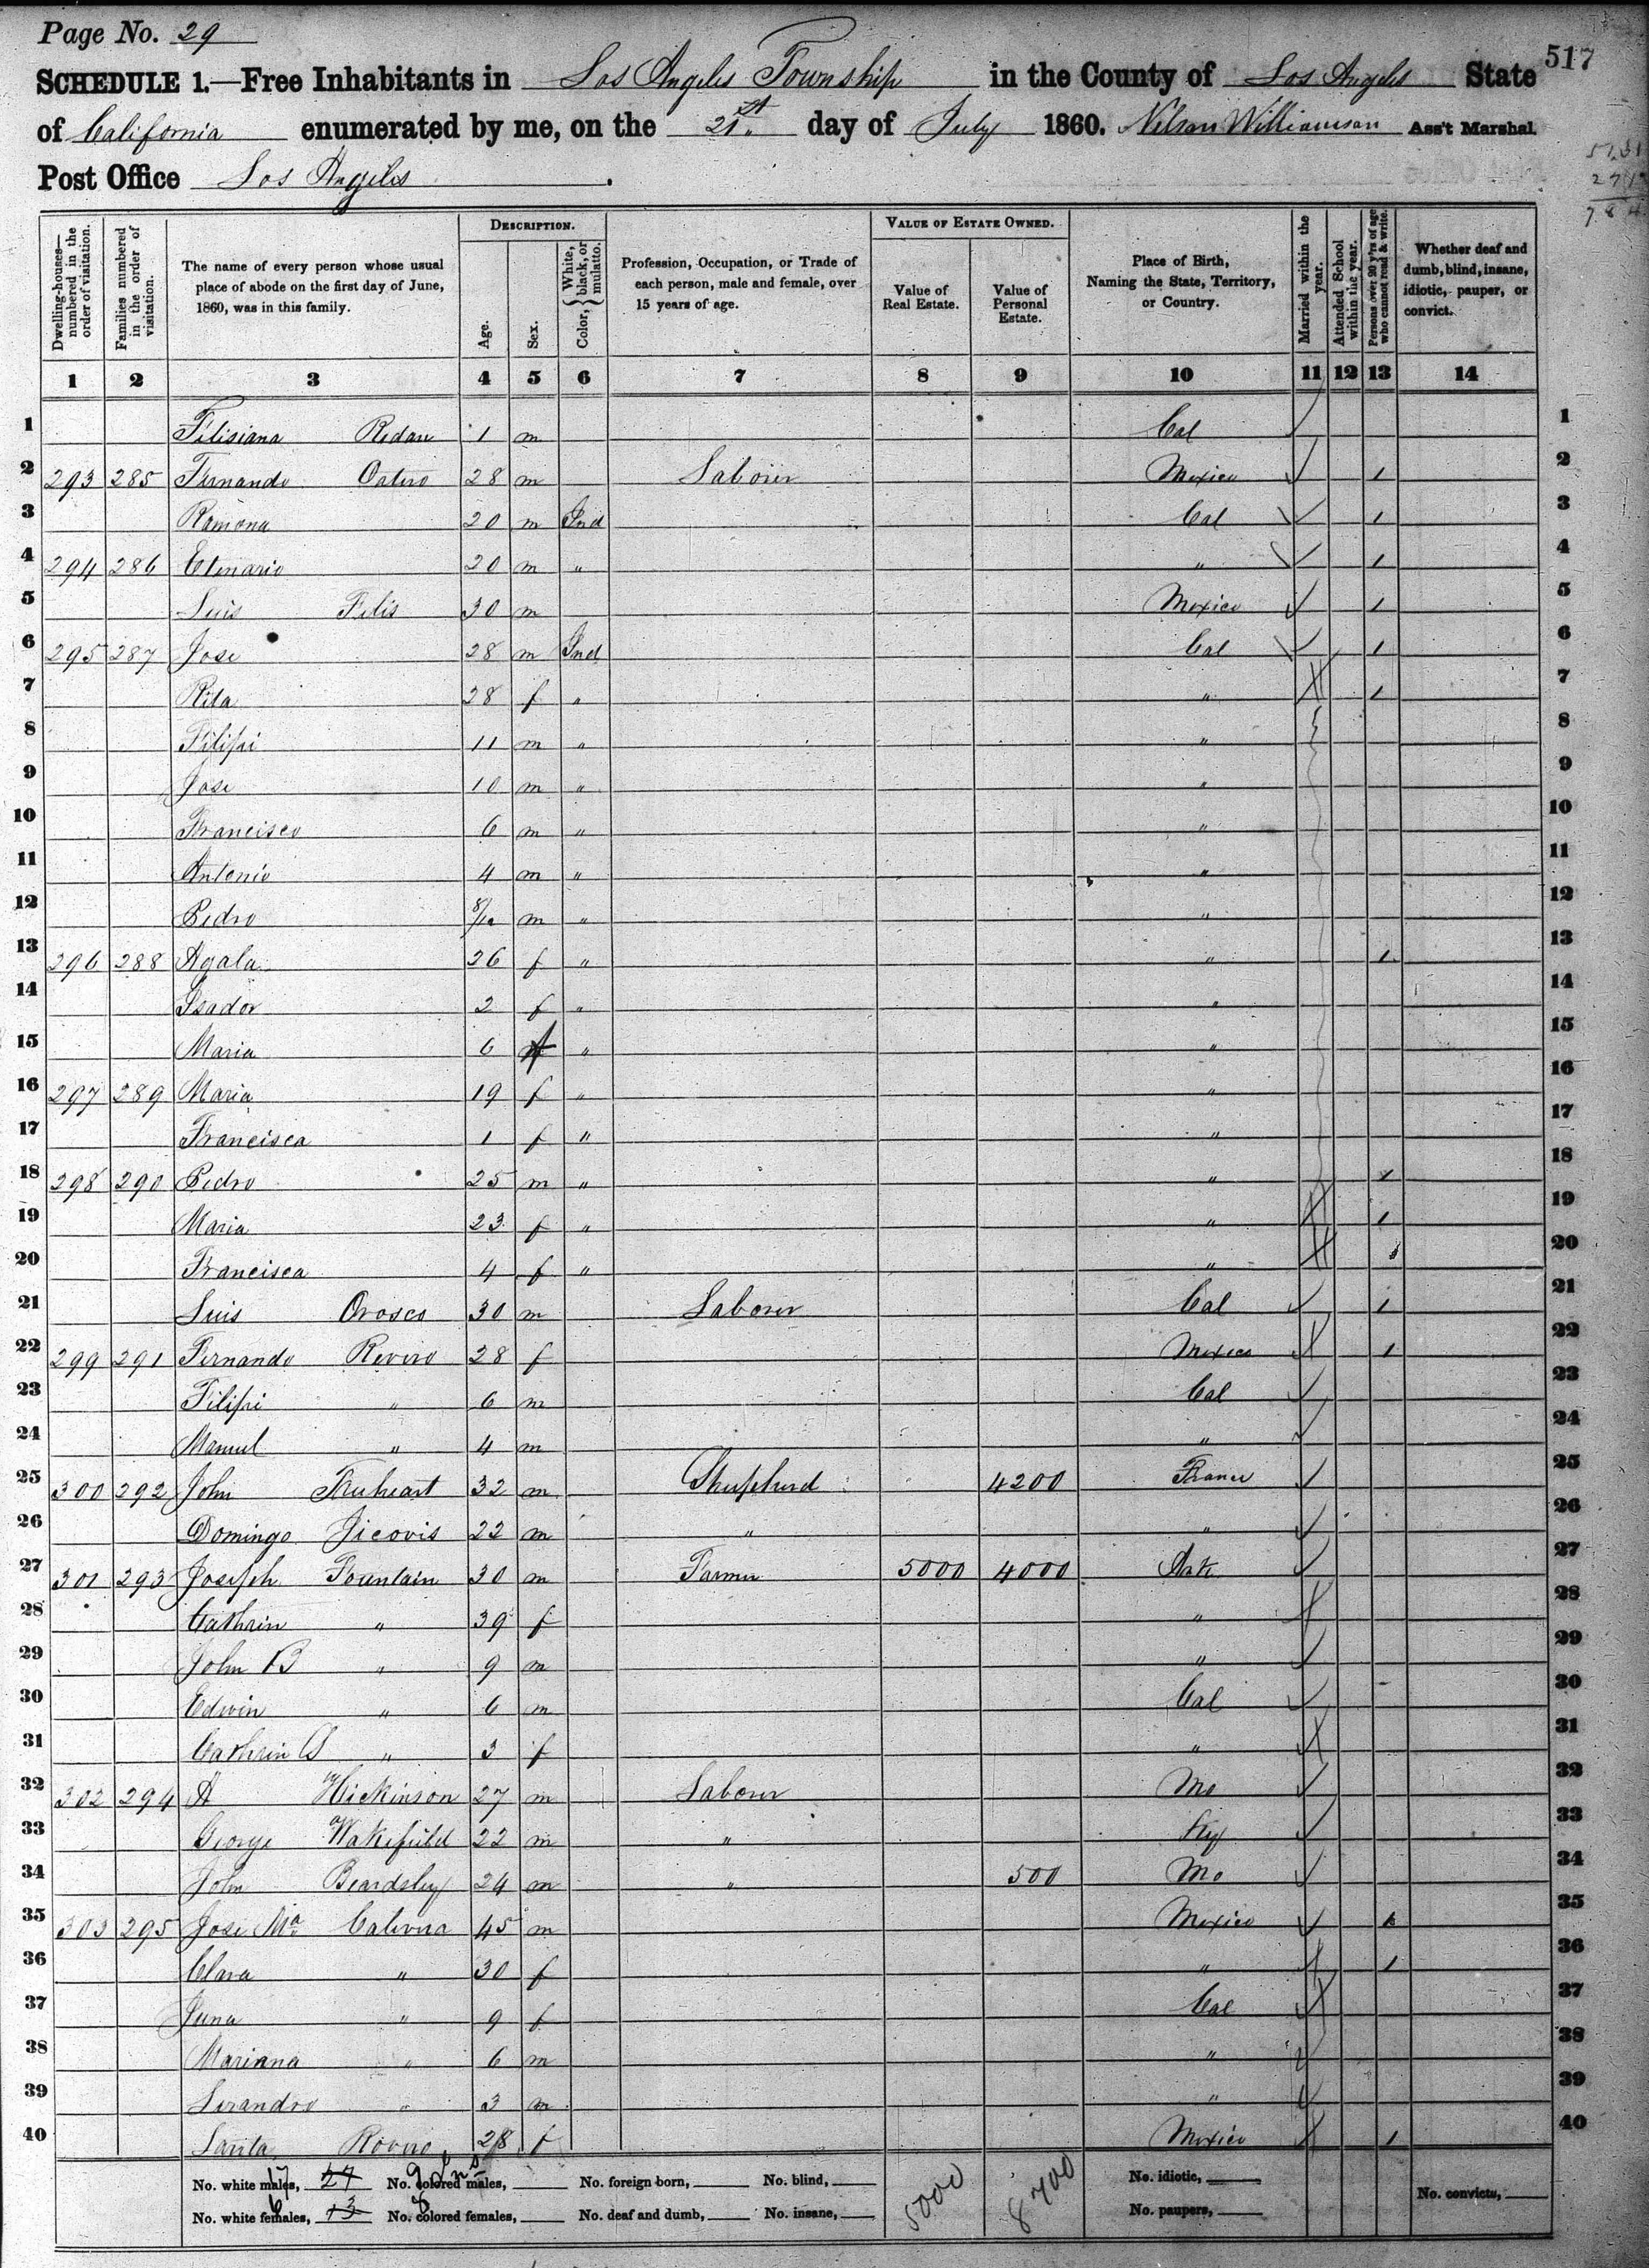 Page No. 29
517
SCHEDULE 1.—Free Inhabitants in Los Angeles Township in the County of Los Angeles State
of California enumerated by me, on the 21st. day of July 1860. Nelson Williamson Ass't Marshal.
Post Office Los Angeles.
Dwelling-houses—numbered in the order of visitation.
Families numbered in the order of visitation.
The name of every person whose usual place of abode on the first day of June, 1860, was in this family.
DESCRIPTION.
Age.
Sex.
Color, { White, black, or mulatto.
Profession, Occupation, or Trade of each person, male and female, over 15 years of age.
VALUE OF ESTATE OWNED.
Value of Real Estate.
Value of Personal Estate.
Place of Birth, Naming the State, Territory, or Country.
Married within the year.
Attended School within the year.
Persons over 20 y'rs of age who cannot read & write.
Whether deaf and dumb, blind, insane, idiotic, pauper, or convict.
1 2 3 4 5 6 7 8 9 10 11 12 13 14
1 Filisiana Redan 1 m Cal 1
2 293 285 Fernando Ostero 28 m Laborer Mexico 1 2
3 Ramona 20 m Ind Cal 1 3
4 294 286 20 m " " 1 4
5 Luis Felis 30 m Mexico 1 5
6 295 287 Jose 28 m Ind Cal 1 6
7 Rita 28 f " " 1 7
8 Filipi 11 m " " 8
9 Jose 10 m " " 9
10 Francisco 6 m " " 10
11 Antonio 4 m " " 11
12 Pedro 8/12 m " " 12
13 296 288 Agala 26 f " " 1 13
14 Isador 2 f " " 14
15 Maria 6 f " " 15
16 297 289 Maria 19 f " " 16
17 Francisca 1 f " " 17
18 298 290 Pedro 25 m " " 1 18
19 Maria 23 f " " 1 19
20 Francisca 4 f " " 20
21 Luis Orosco 30 m Laborer Cal 1 21
22 299 291 Fernando Rivero 28 f Mexico 1 22
23 Filipi " 6 m Cal 23
24 Manuel " 4 m " 24
25 300 292 John Fruheart 32 m Shepherd 4200 France 25
26 Domingo Jicovis 22 m " " 26
27 301 293 Joseph Fountain 30 m Farmer 5000 4000 Ark 27
28 Cathrin " 39 f " 28
29 John B " 9 m " 29
30 Edwin " 6 m Cal 30
31 Cathrin " 3 f " 31
32 302 294 A Hickinson 27 m Laborer Mo 32
33 George Wakefield 22 m " Ky 33
34 John Beardsley 24 m " 500 Mo 34
35 303 295 Jose Ma Calivera 45 m Mexico 1 35
36 Clara " 30 f " 1 36
37 Juna " 9 f Cal 37
38 Mariana " 6 m " 38
39 Lerandro " 3 m " 39
40 Santa Rovero 28 f Mexico 1 40
No. white males, 27 17 No. colored males, 9 No. foreign born, No. blind, 5000 8700 No. idiotic,
No. white females, 13 6 No. colored females, 8 No. deaf and dumb, No. insane, No. paupers, No. convicts,